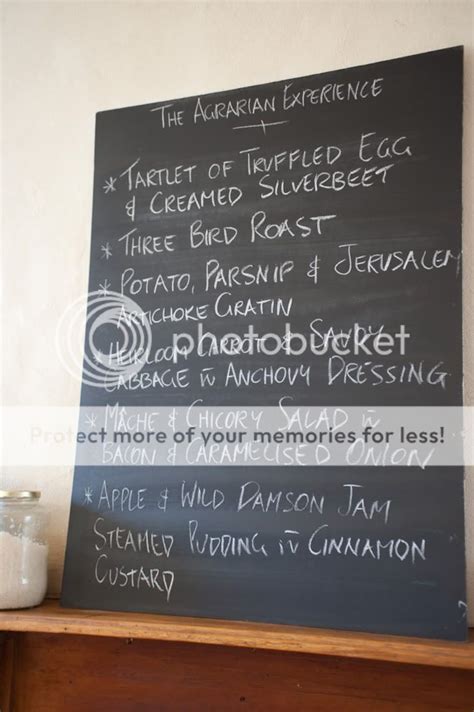 The Agrarian Experience
* Tartlet of Truffled Egg
& Creamed Silverbeet
* Three Bird Roast
* Potato, Parsnip & Jerusalem
Artichoke Gratin
* Heirloom Carrot & Savoy
Cabbage w Anchovy Dressing
* Mâche & Chicory Salad w
Bacon & Caramelised Onion
* Apple & Wild Damson Jam
Steamed Pudding w Cinnamon
Custard
photobucket
Protect more of your memories for less!